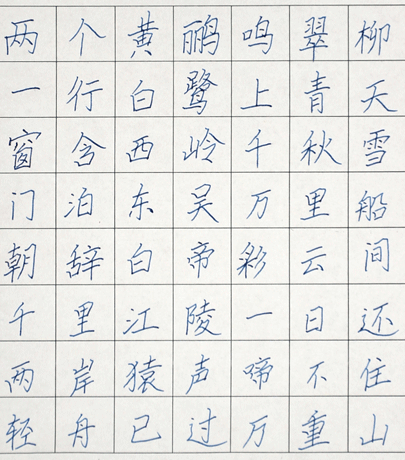 两个黄鹂鸣翠柳
一行白鹭上青天
窗含西岭千秋雪
门泊东吴万里船
朝辞白帝彩云间
千里江陵一日还
两岸猿声啼不住
轻舟已过万重山